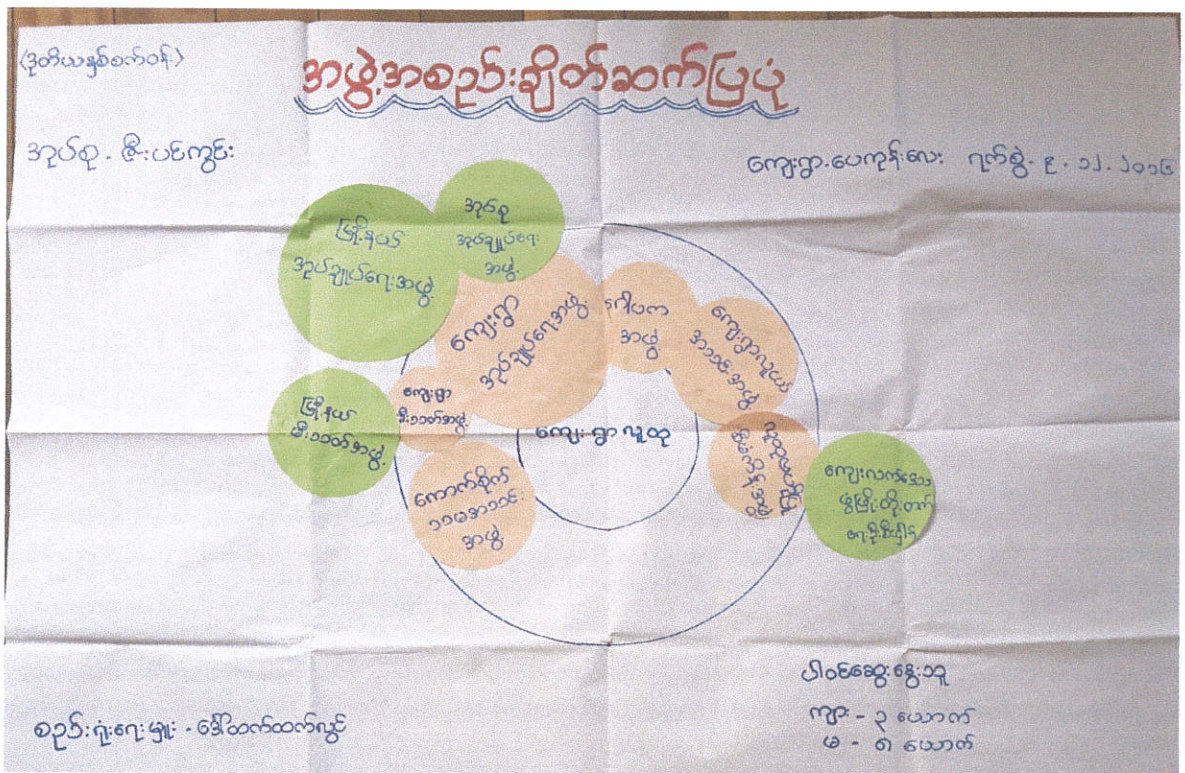 (ဒုတိယနှစ်စက်ဝန်း)
အဖွဲ့အစည်းချိတ်ဆက်ပြပုံ
အုပ်စု - ဇီးပင်ကွင်း
ကျေးရွာ - ပေကုန်းလေး ရက်စွဲ - ၉ . ၁၂ . ၂၀၁၆
မြို့နယ်
အုပ်ချုပ်ရေးအဖွဲ့
အုပ်စု
အုပ်ချုပ်ရေး
အဖွဲ့
ကျေးရွာ
အုပ်ချုပ်ရေးအဖွဲ့
အဖွဲ့
ကျေးရွာလူငယ်
အသင်းအဖွဲ့
မြို့နယ်
မီးသတ်အဖွဲ့
ကျေးရွာ
မီးသတ်အဖွဲ့
ကျေးရွာ လူထု
ကောက်စိုက်
သမအသင်း
အဖွဲ့
လူထုဗဟိုပြု
စီမံကိန်းအဖွဲ့
ကျေးလက်ဒေသ
ဖွံ့ဖြိုးတိုးတက်
ရေးဦးစီးဌာန
ပါဝင်ဆွေးနွေးသူ
ကျား - ၃ ယောက်
မ - ၈ ယောက်
စည်းရုံးရေးမှူး - ဒေါ်ထက်ထက်လွင်